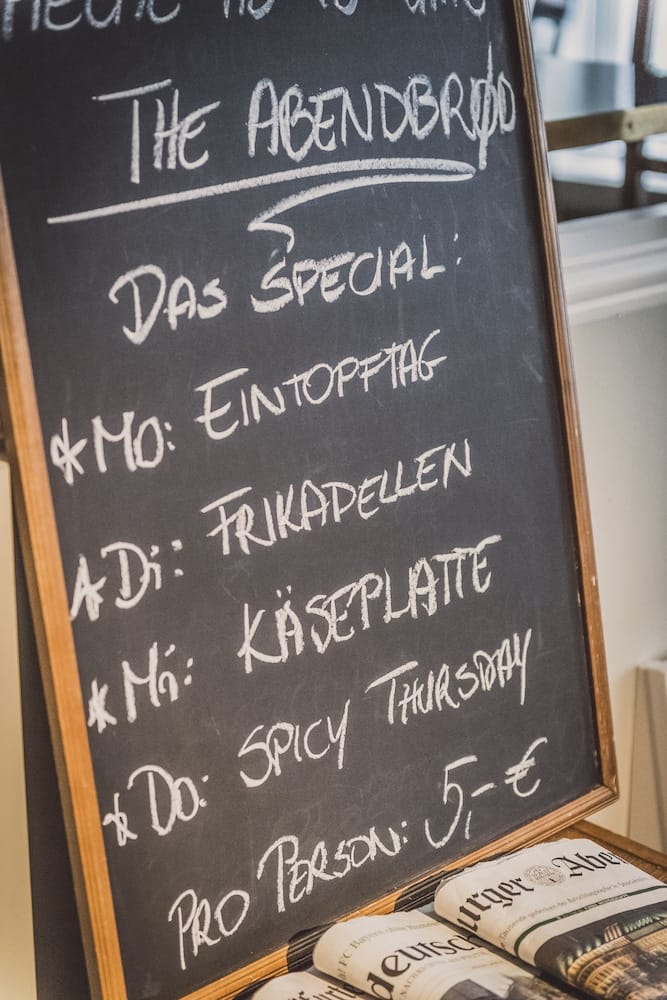 THE ABENDBRØD
DAS SPECIAL:
* MO: EINTOPFTAG
* DI: FRIKADELLEN
* MI: KÄSEPLATTE
* DO: SPICY THURSDAY
PRO PERSON: 5,- €
urger Abe
deutsc
FC Bayern